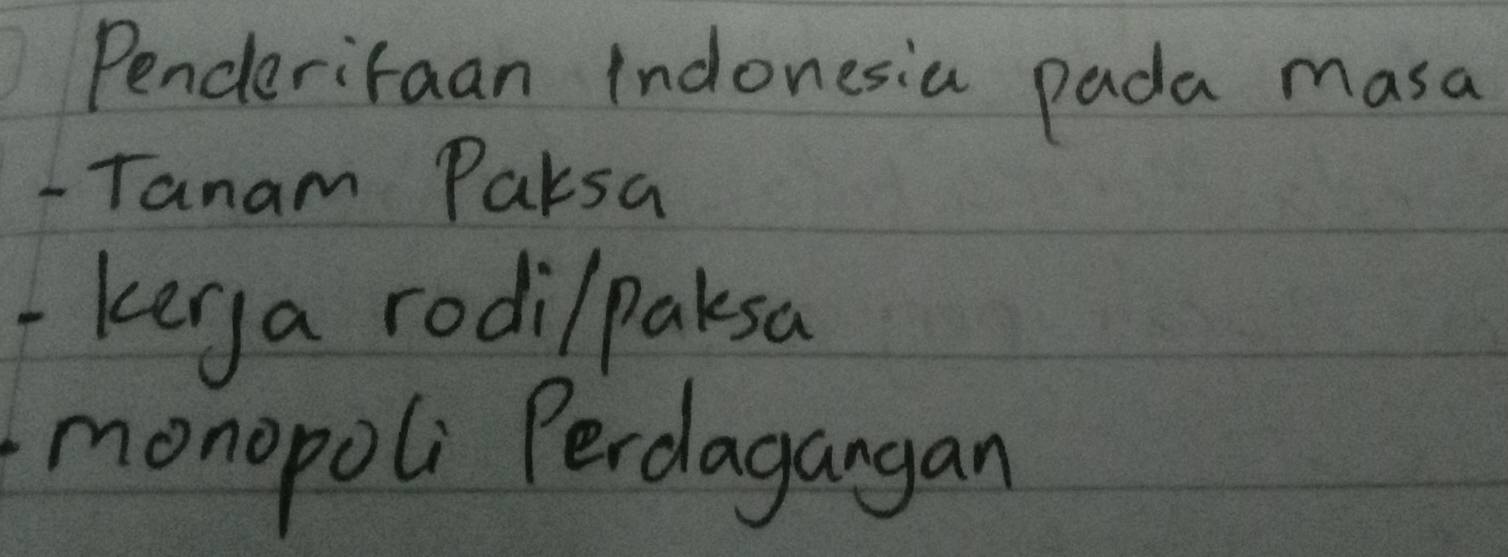 Penderitaan Indonesia pada masa
- Tanam Paksa
- kerja rodi/paksa
- monopoli Perdagangan